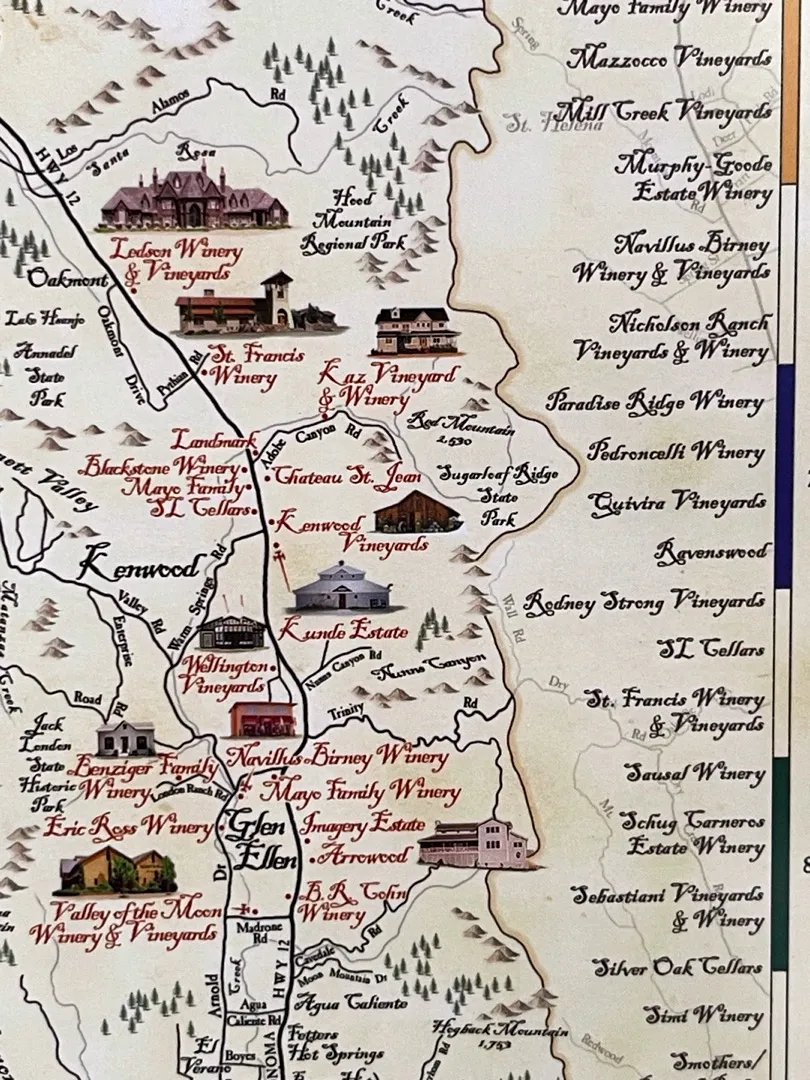 Creek
Los Alamos Rd
Creek
Santa Rosa
HWY 12
Hood
Mountain
Regional Park
Ledson Winery
& Vineyards
Oakmont
Oakmont Drive
Annadel
State
Park
Pythian Rd
St. Francis
Winery
Kaz Vineyard
& Winery
Red Mountain
2,530
Adobe Canyon Rd
Landmark
Blackstone Winery
Mayo Family
SL Cellars
Chateau St. Jean
Sugarloaf Ridge
State
Park
Kenwood
Vineyards
Valley
Kenwood
Warm Springs Rd
Valley Rd
Enterprise Rd
Kunde Estate
Wellington
Vineyards
Nunns Canyon Rd
Nunns Canyon
Trinity Rd
Creek
Road
Jack
London
State
Historic
Park
Benziger Family
Winery
London Ranch Rd
Navillus Birney Winery
Mayo Family Winery
Eric Ross Winery
Glen
Ellen
Imagery Estate
Arrowood
B.R. Cohn
Winery
Valley of the Moon
Winery & Vineyards
Madrone
Rd
Cavedale Rd
Moon Mountain Dr
HWY 12
Arnold Dr
Creek
Agua
Caliente Rd
Agua Caliente
Fetters
Hot Springs
Hogback Mountain
1,753
El
Verano
Boyes
Spring
St. Helena
Wall Rd
Dry
Rd
Mt.
Redwood
Mayo Family Winery
Mazzocco Vineyards
Mill Creek Vineyards
Murphy-Goode
Estate Winery
Navillus Birney
Winery & Vineyards
Nicholson Ranch
Vineyards & Winery
Paradise Ridge Winery
Pedroncelli Winery
Quivira Vineyards
Ravenswood
Rodney Strong Vineyards
SL Cellars
St. Francis Winery
& Vineyards
Sausal Winery
Schug Carneros
Estate Winery
Sebastiani Vineyards
& Winery
Silver Oak Cellars
Simi Winery
Smothers/
8